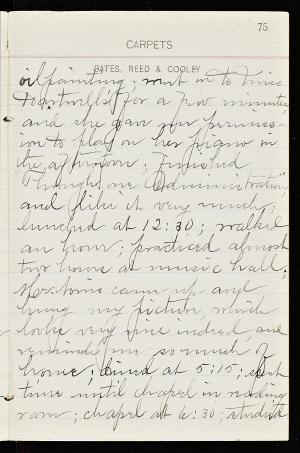 75
CARPETS
BATES, REED & COOLEY
oil painting; went in to Miss
for a few minutes
and she gave me permiss-
ion to play on her piano in
the afternoon; finished
"Through one Administration,"
and I like it very much;
lunched at 12:30; walked
an hour; practiced almost
two hours at music hall;
came up and
hung my picture, which
looks very nice indeed, and
reminds me so much of
home; dined at 5:15; spent
time until chapel in reading
room; chapel at 6:30; studied